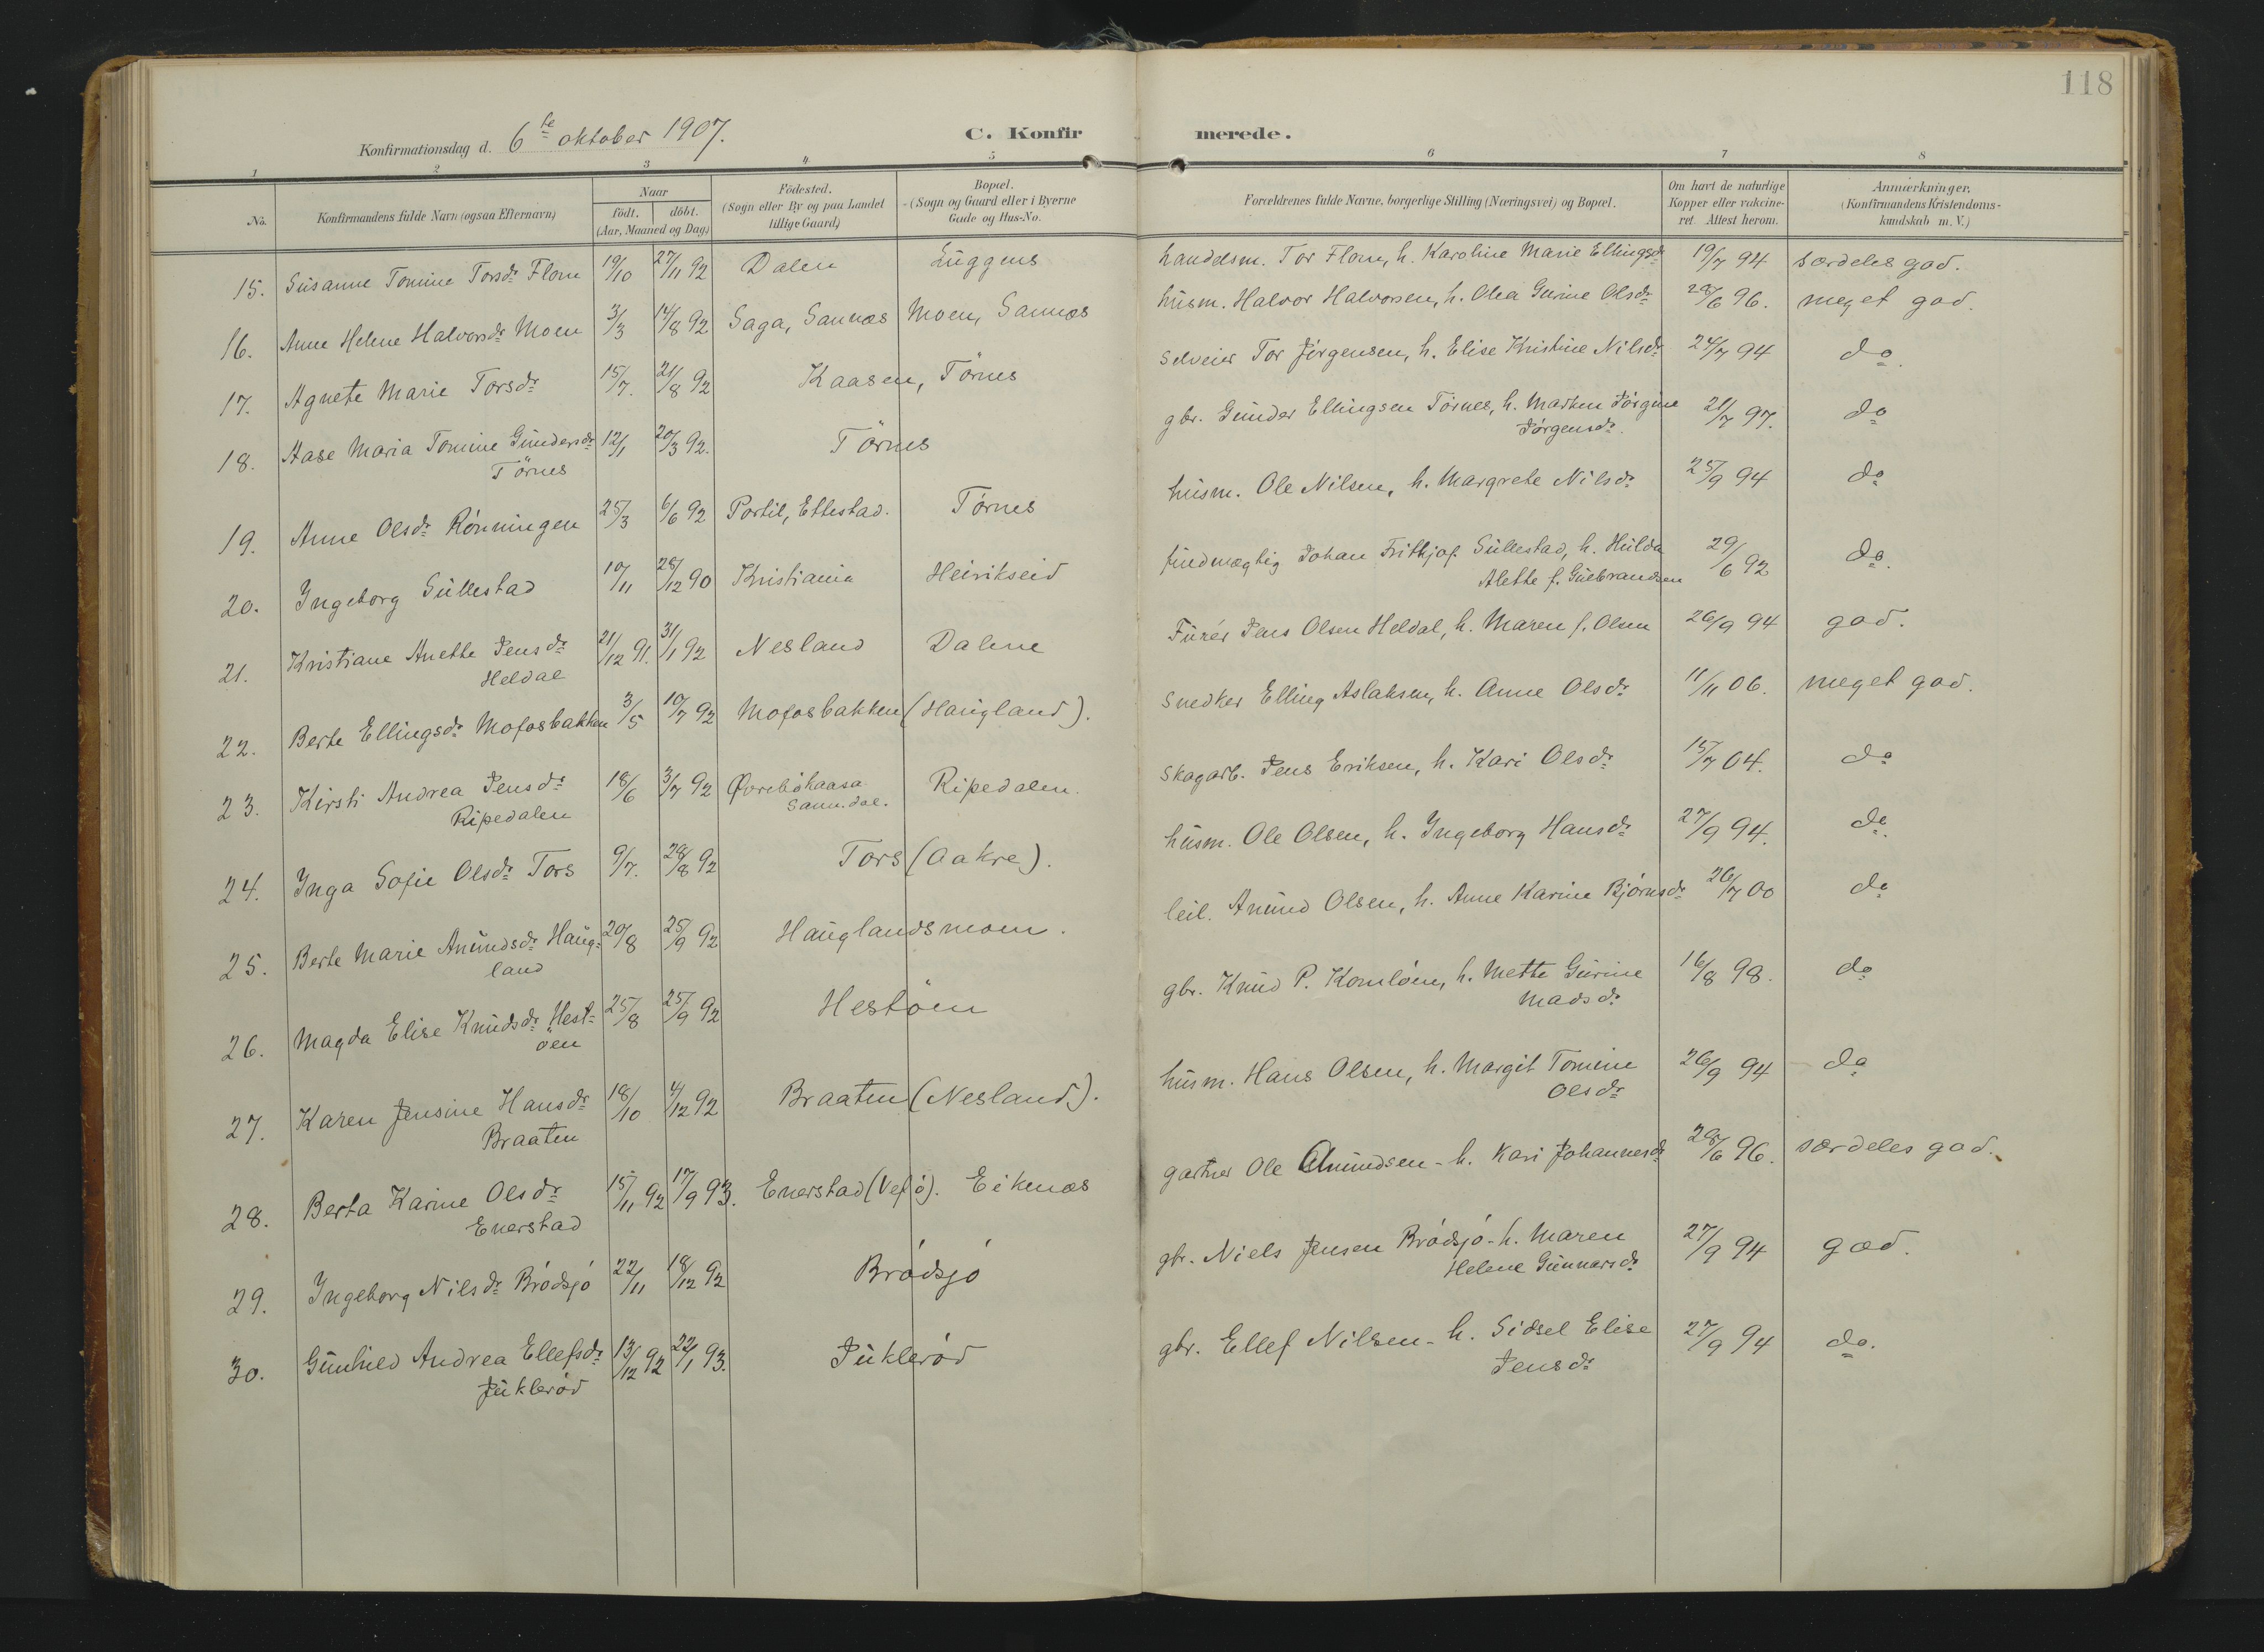 118
Konfirmationsdag d. 6te oktober 1907.
C. Konfirmerede.
1 2 3 4 5 6 7 8
No.
Konfirmandens fulde Navn (ogsaa Efternavn)
Naar
födt. döbt.
(Aar, Maaned og Dag)
Födested.
(Sogn eller By og paa Landet
tillige Gaard)
Bopæl.
(Sogn og Gaard eller i Byerne
Gade og Hus-No.
Forældrenes fulde Navne, borgerlige Stilling (Næringsvei) og Bopæl.
Om havt de naturlige
Kopper eller vakcine-
ret. Attest herom.
Anmærkninger.
(Konfirmandens Kristendoms-
kundskab m. V.)
15. Susanne Tomine Torsdr Flom 19/10 27/11 92 Dalen Luggens handelsm. Tor Flom, h. Karoline Marie Ellingsdr 19/7 94 særdeles god.
16. Anne Helene Halvorsdr Moen 3/3 14/8 92 Saga, Sannæs Moen, Sannæs husm. Halvor Halvorsen, h. Olea Gurine Olsdr 28/6 96. meget god.
17. Agnete Marie Torsdr 15/7. 21/8 92 Kaasen, Törnes selveier Tor Jörgensen, h. Elise Kristine Nilsdr 24/7 94 do.
18. Aase Maria Tomine Gundersdr 12/1 20/3 92. Törnes gbr. Gunder Ellingsen Törnes, h. Marken Jörgine 21/7 97. do
Törnes Jörgensdr.
19. Anne Olsdr Rönningen 25/3 6/6 92 Portil, Ettestad. Törnes husm. Ole Nilsen, h. Margrete Nilsdr 25/9 94 do
20. Ingeborg Sullestad 10/11 28/12 90 Kristiania Heirikseid fuldmægtig Johan Frithjof Sullestad, h. Hulda 29/6 92 do.
Alette f. Gulbrandsen
21. Kristiane Anette Jensdr 21/12 91. 31/1 92 Nesland Dalene Furér Jens Olsen Heldal, h. Maren f. Olsen 26/9 94 god.
Heldal
22. Berte Ellingsdr Mofosbakken 3/5 10/7 92 Mofosbakken (Haugland). snedker Elling Aslaksen, h. Anne Olsdr 11/11 06. meget god.
23. Kirsti Andrea Jensdr 18/6 3/7 92 Övrebökaasa Ripedalen. skogarb. Jens Eriksen, h. Kari Olsdr 15/7 04. do
Ripedalen Sann.dal.
24. Inga Sofie Olsdr Tors 9/7. 28/8 92 Tors (Aakre). husm. Ole Olsen, h. Ingeborg Hansdr 27/9 94. do.
25. Berte Marie Anundsdr Haug- 20/8 25/9 92 Hauglandsmoen. leil. Anund Olsen, h. Anne Karine Björnsdr 26/7 00 do
land
26. Magda Elise Knudsdr Hest- 25/8 25/9 92 Hestöen gbr. Knud P. Komlöen, h. Mette Gurine 16/8 98. do
öen Madsdr.
27. Karen Jensine Hansdr 18/10 4/12 92 Braaten (Nesland). husm. Hans Olsen, h. Margit Tomine 26/9 94 do
Braaten Olsdr
28. Berta Karine Olsdr 15/11 92 17/9 93. Enerstad (Vefsö). Eikenæs gartner Ole Amundsen - h. Kari Johannesdr 28/6 96. særdeles god.
Enerstad
29. Ingeborg Nilsdr Brödsjö 22/11 18/12 92 Brödsjö gbr. Niels Jensen Brödsjö - h. Maren 27/9 94 god.
Helene Gunnarsdr
30. Gunhild Andrea Ellefsdr 13/12 92 22/1 93. Juklerød gbr. Ellef Nilsen - h. Sidsel Elise 27/9 94 do.
Juklerød Jensdr